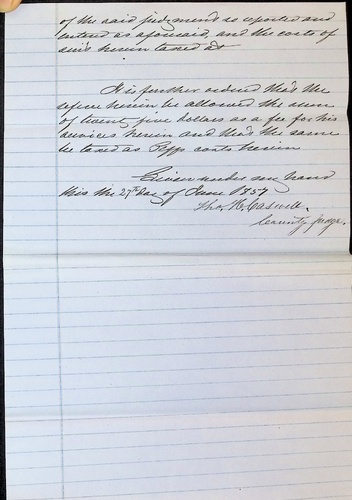 of the said judgment as reported and
entered as aforesaid, and the costs of
suit herein taxed at
It is further ordered that the
referee herein be allowed the sum
of twenty five dollars as a fee for his
services herein and that the same
be taxed as Plffs costs herein
Given under my hand
this the 27th day of June 1857
Thos H. Caswell.
County Judge.